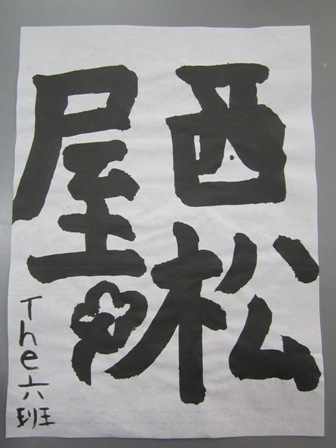 西松
屋
The六班